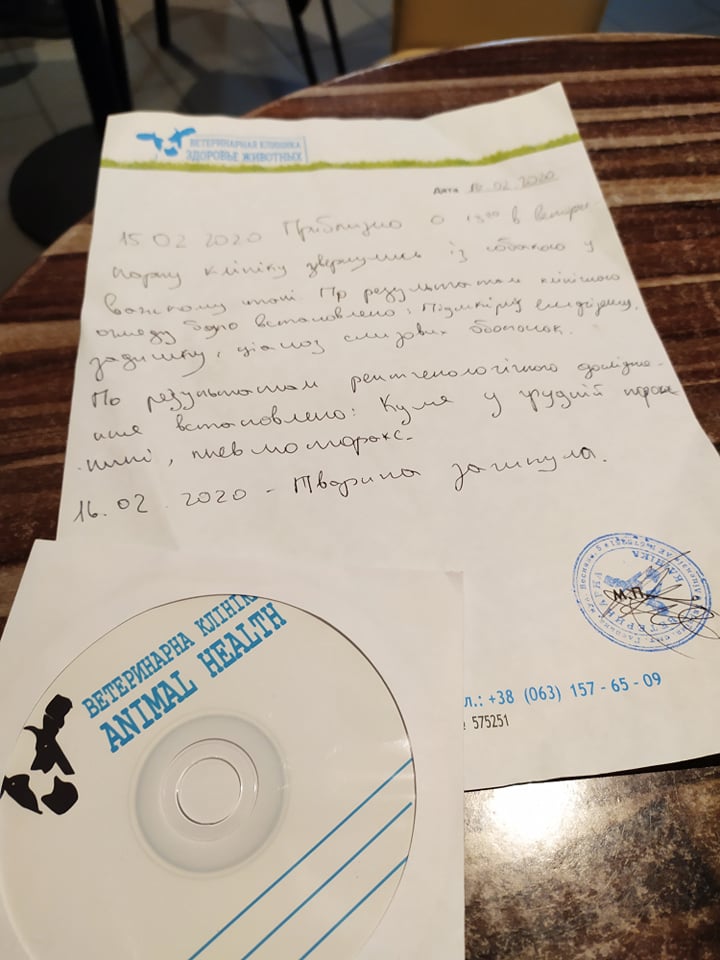 ВЕТЕРИНАРНАЯ КЛИНИКА
ЗДОРОВЬЕ ЖИВОТНЫХ
Дата 16.02.2020
15 02 2020 Приблизно о 13⁰⁰ в ветери-
нарну клініку звернулись із собакою у
важкому стані. По результатам клінічного
огляду було встановлено: Підшкірну емфізему,
задишку, ціаноз слизових оболонок.
По результатам рентгенологічного дослідже-
ння встановлено: Куля у грудній порож-
нині, пневмоторакс.
16.02.2020 - Тварина загинула.
М.П.
ВЕТЕРИНАРНА
КЛІНІКА
л.: +38 (063) 157 - 65 - 09
575251
ВЕТЕРИНАРНА КЛІНІК
ANIMAL HEALTH